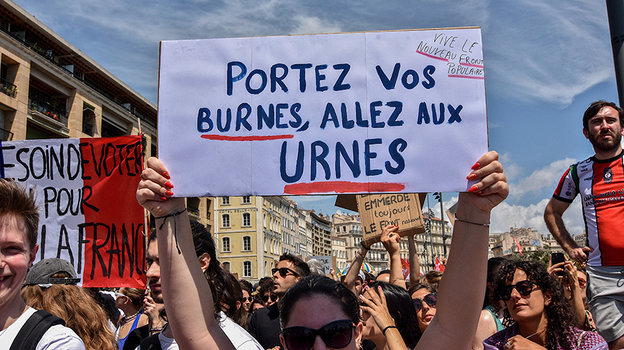 PORTEZ VOS
BURNES, ALLEZ AUX
URNES
VIVE LE
NOUVEAU FRONT
POPULAIRE
ESOIN DE VOTER
POUR
LA FRANC
EMMERDE
toujours le
FRONT